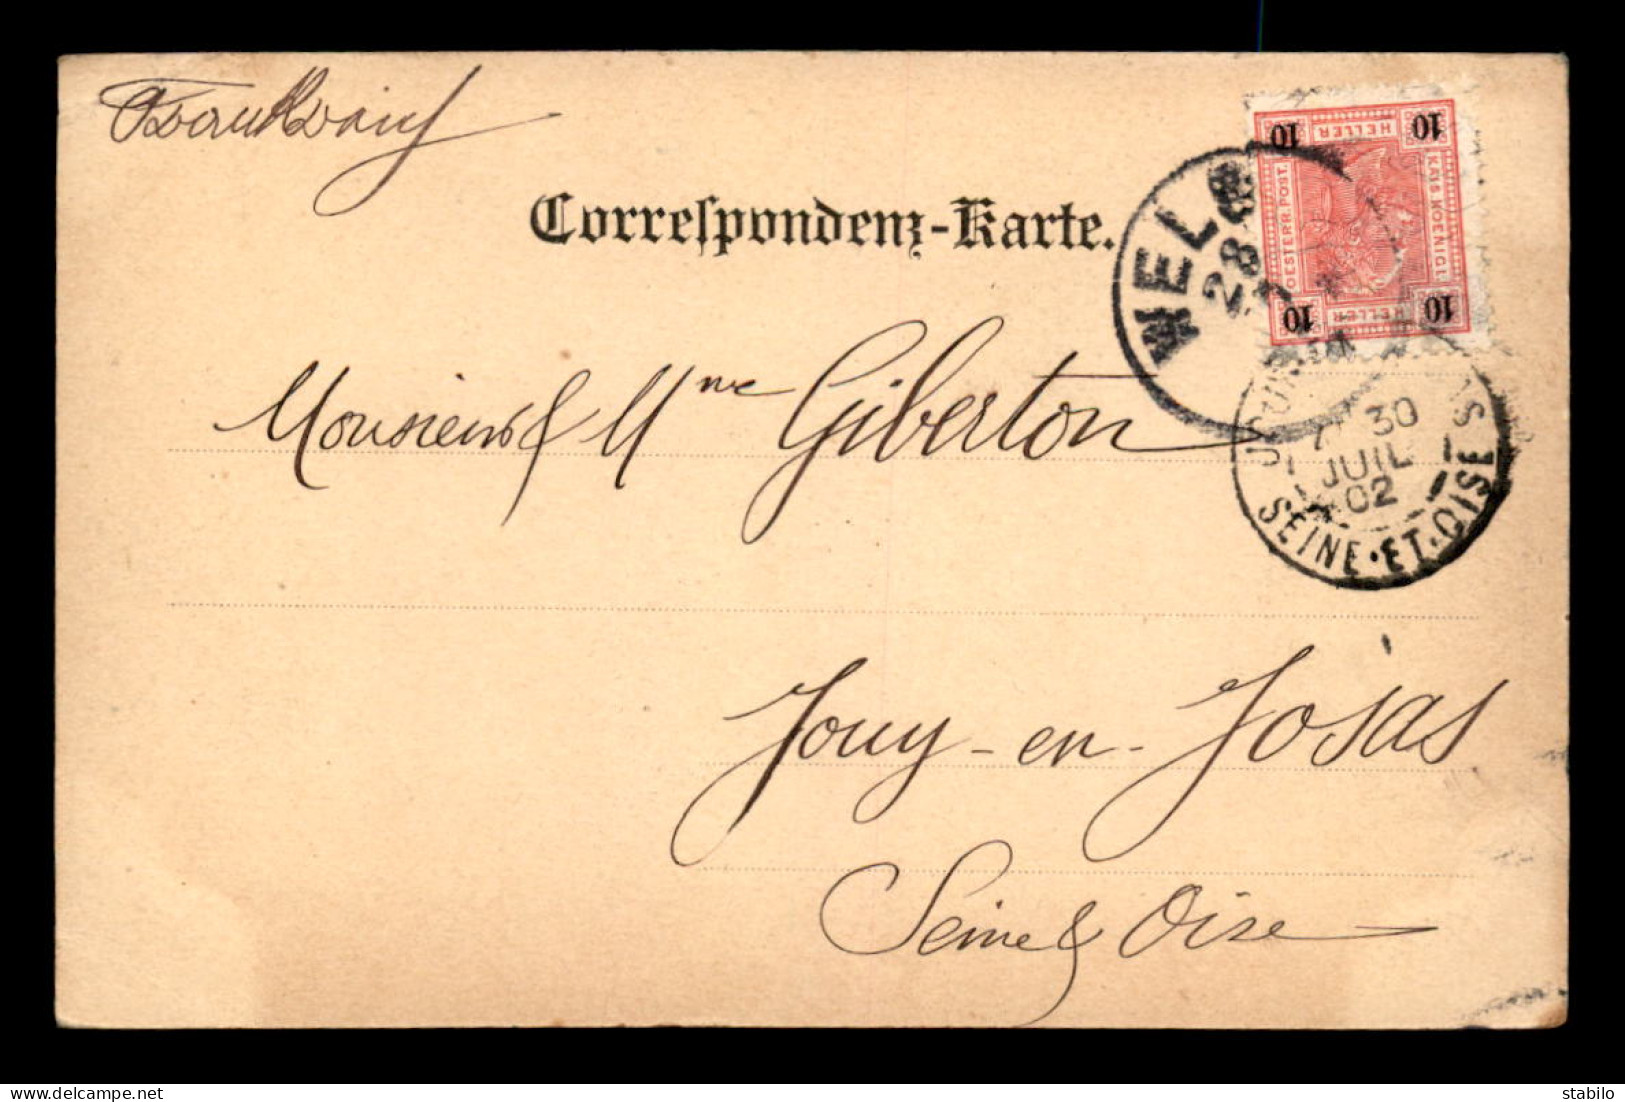 Correſpondenz-Karte.
10 HELLER 10
OESTERR. POST.
KAIS. KOENIGL.
10 HELLER 10
WELS
28
7
Monsieur & Mme Giberton
30
JUIL
02
SEINE·ET·OISE
Jouy-en-Josas
Seine & Oise
delcampe.net
stabilo